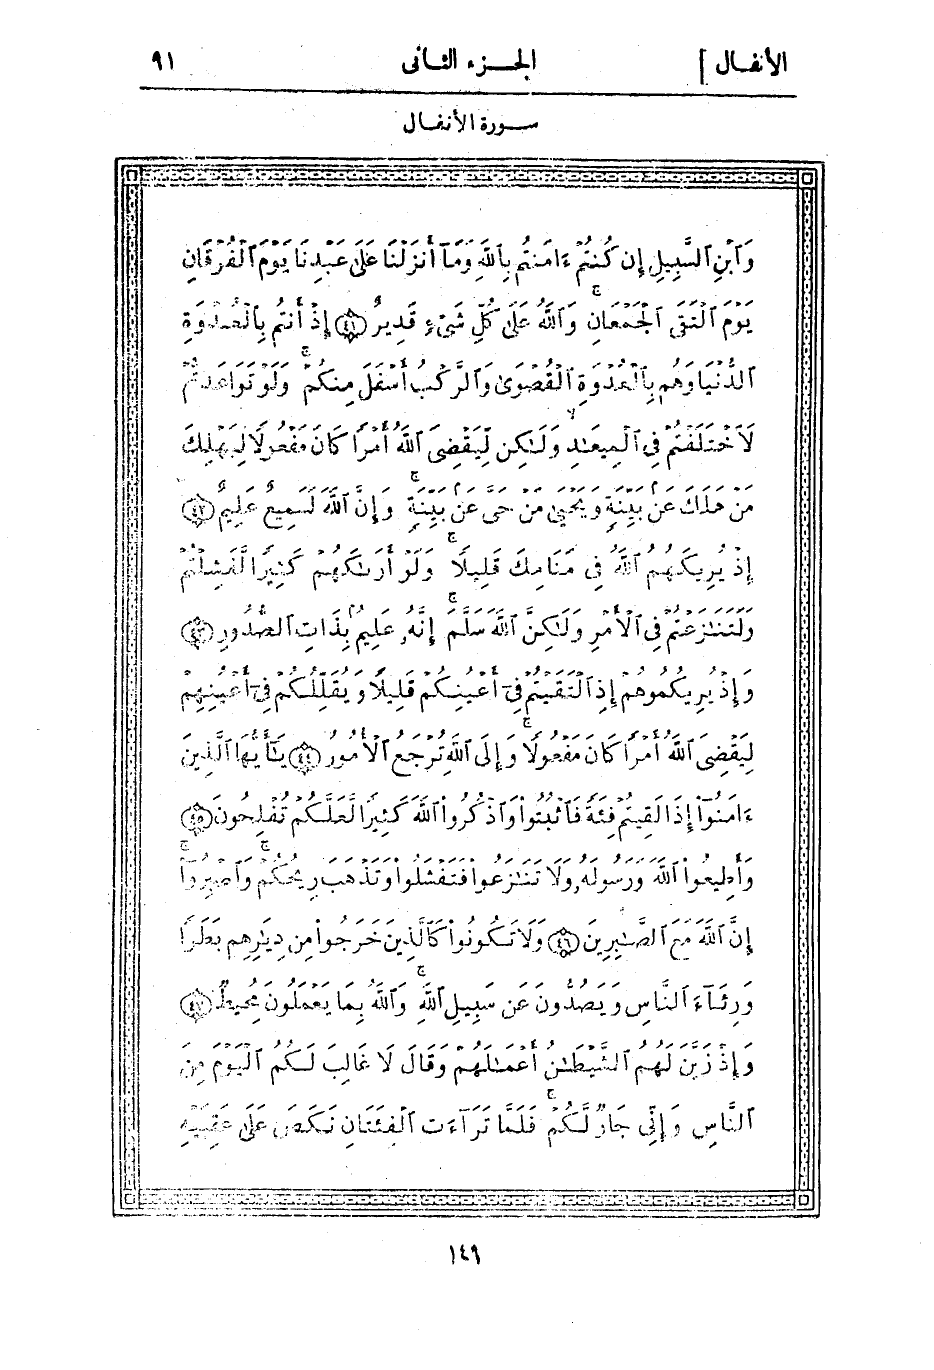 الأنفال]
الجزء الثانى
٩١
سورة الأنفال
وَٱبْنِ ٱلسَّبِيلِ إِن كُنتُمْ ءَامَنتُم بِٱللَّهِ وَمَآ أَنزَلْنَا عَلَىٰ عَبْدِنَا يَوْمَ ٱلْفُرْقَانِ
يَوْمَ ٱلْتَقَى ٱلْجَمْعَانِ ۗ وَٱللَّهُ عَلَىٰ كُلِّ شَىْءٍ قَدِيرٌ ﴿٤١﴾ إِذْ أَنتُم بِٱلْعُدْوَةِ
ٱلدُّنْيَا وَهُم بِٱلْعُدْوَةِ ٱلْقُصْوَىٰ وَٱلرَّكْبُ أَسْفَلَ مِنكُمْ ۚ وَلَوْ تَوَاعَدتُّمْ
لَٱخْتَلَفْتُمْ فِى ٱلْمِيعَـٰدِ ۙ وَلَـٰكِن لِّيَقْضِىَ ٱللَّهُ أَمْرًا كَانَ مَفْعُولًا لِّيَهْلِكَ
مَنْ هَلَكَ عَنۢ بَيِّنَةٍ وَيَحْيَىٰ مَنْ حَىَّ عَنۢ بَيِّنَةٍ ۗ وَإِنَّ ٱللَّهَ لَسَمِيعٌ عَلِيمٌ ﴿٤٢﴾
إِذْ يُرِيكَهُمُ ٱللَّهُ فِى مَنَامِكَ قَلِيلًا ۖ وَلَوْ أَرَىٰكَهُمْ كَثِيرًا لَّفَشِلْتُمْ
وَلَتَنَـٰزَعْتُمْ فِى ٱلْأَمْرِ وَلَـٰكِنَّ ٱللَّهَ سَلَّمَ ۗ إِنَّهُۥ عَلِيمٌۢ بِذَاتِ ٱلصُّدُورِ ﴿٤٣﴾
وَإِذْ يُرِيكُمُوهُمْ إِذِ ٱلْتَقَيْتُمْ فِىٓ أَعْيُنِكُمْ قَلِيلًا وَيُقَلِّلُكُمْ فِىٓ أَعْيُنِهِمْ
لِيَقْضِىَ ٱللَّهُ أَمْرًا كَانَ مَفْعُولًا ۗ وَإِلَى ٱللَّهِ تُرْجَعُ ٱلْأُمُورُ ﴿٤٤﴾ يَـٰٓأَيُّهَا ٱلَّذِينَ
ءَامَنُوٓا۟ إِذَا لَقِيتُمْ فِئَةً فَٱثْبُتُوا۟ وَٱذْكُرُوا۟ ٱللَّهَ كَثِيرًا لَّعَلَّكُمْ تُفْلِحُونَ ﴿٤٥﴾
وَأَطِيعُوا۟ ٱللَّهَ وَرَسُولَهُۥ وَلَا تَنَـٰزَعُوا۟ فَتَفْشَلُوا۟ وَتَذْهَبَ رِيحُكُمْ ۖ وَٱصْبِرُوٓا۟ ۚ
إِنَّ ٱللَّهَ مَعَ ٱلصَّـٰبِرِينَ ﴿٤٦﴾ وَلَا تَكُونُوا۟ كَٱلَّذِينَ خَرَجُوا۟ مِن دِيَـٰرِهِم بَطَرًا
وَرِئَآءَ ٱلنَّاسِ وَيَصُدُّونَ عَن سَبِيلِ ٱللَّهِ ۚ وَٱللَّهُ بِمَا يَعْمَلُونَ مُحِيطٌ ﴿٤٧﴾
وَإِذْ زَيَّنَ لَهُمُ ٱلشَّيْطَـٰنُ أَعْمَـٰلَهُمْ وَقَالَ لَا غَالِبَ لَكُمُ ٱلْيَوْمَ مِنَ
ٱلنَّاسِ وَإِنِّى جَارٌ لَّكُمْ ۖ فَلَمَّا تَرَآءَتِ ٱلْفِئَتَانِ نَكَصَ عَلَىٰ عَقِبَيْهِ
١٤٩